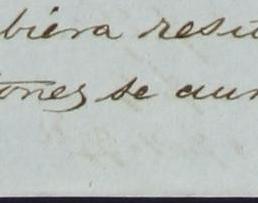 biera resu
ones se aun